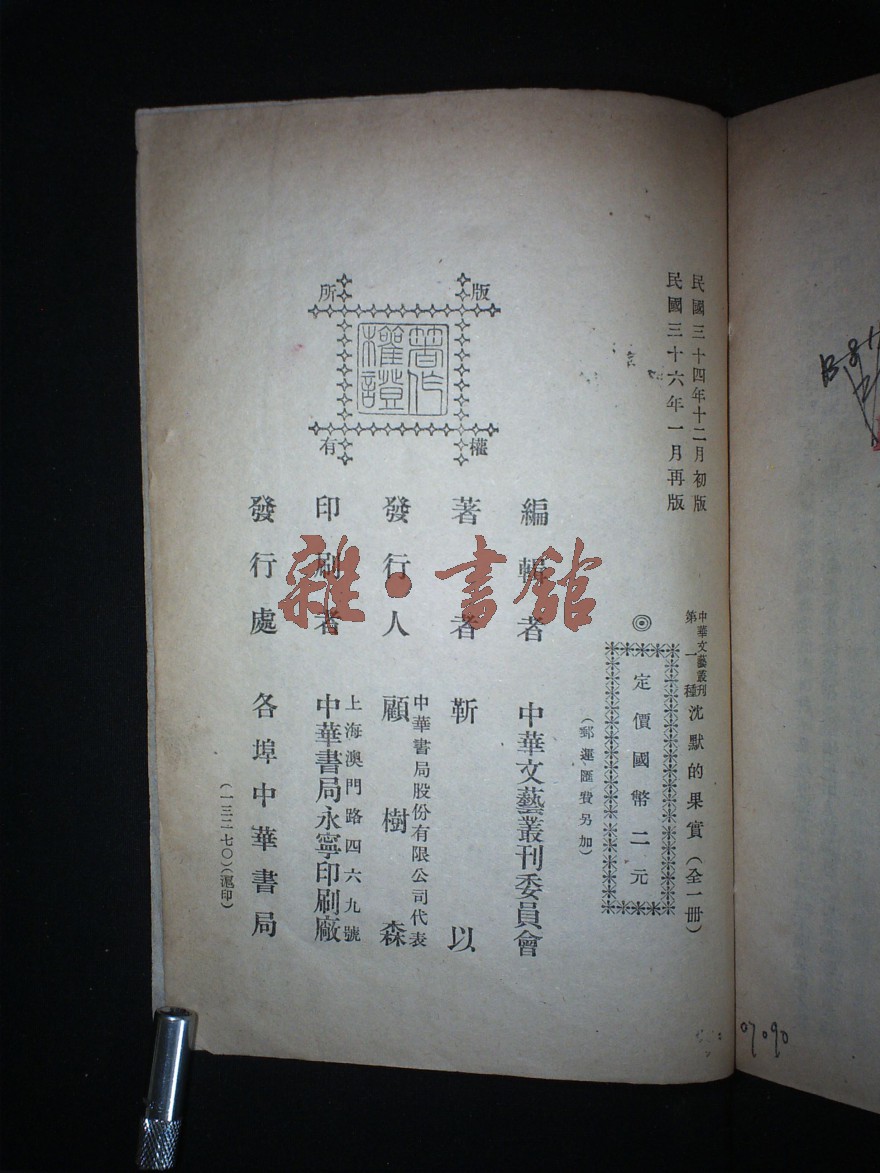 民國三十四年十二月初版
民國三十六年一月再版
中華文藝叢刊
第一種
沈默的果實（全一冊）
◎定價國幣二元
（郵運匯費另加）
編輯者 中華文藝叢刊委員會
著者 靳以
發行人 中華書局股份有限公司代表
顧樹森
印刷者 上海澳門路四六九號
中華書局永寧印刷廠
發行處 各埠中華書局
（一三二七〇）（滬印）
版權所有
著作權證
雜·書館
07090